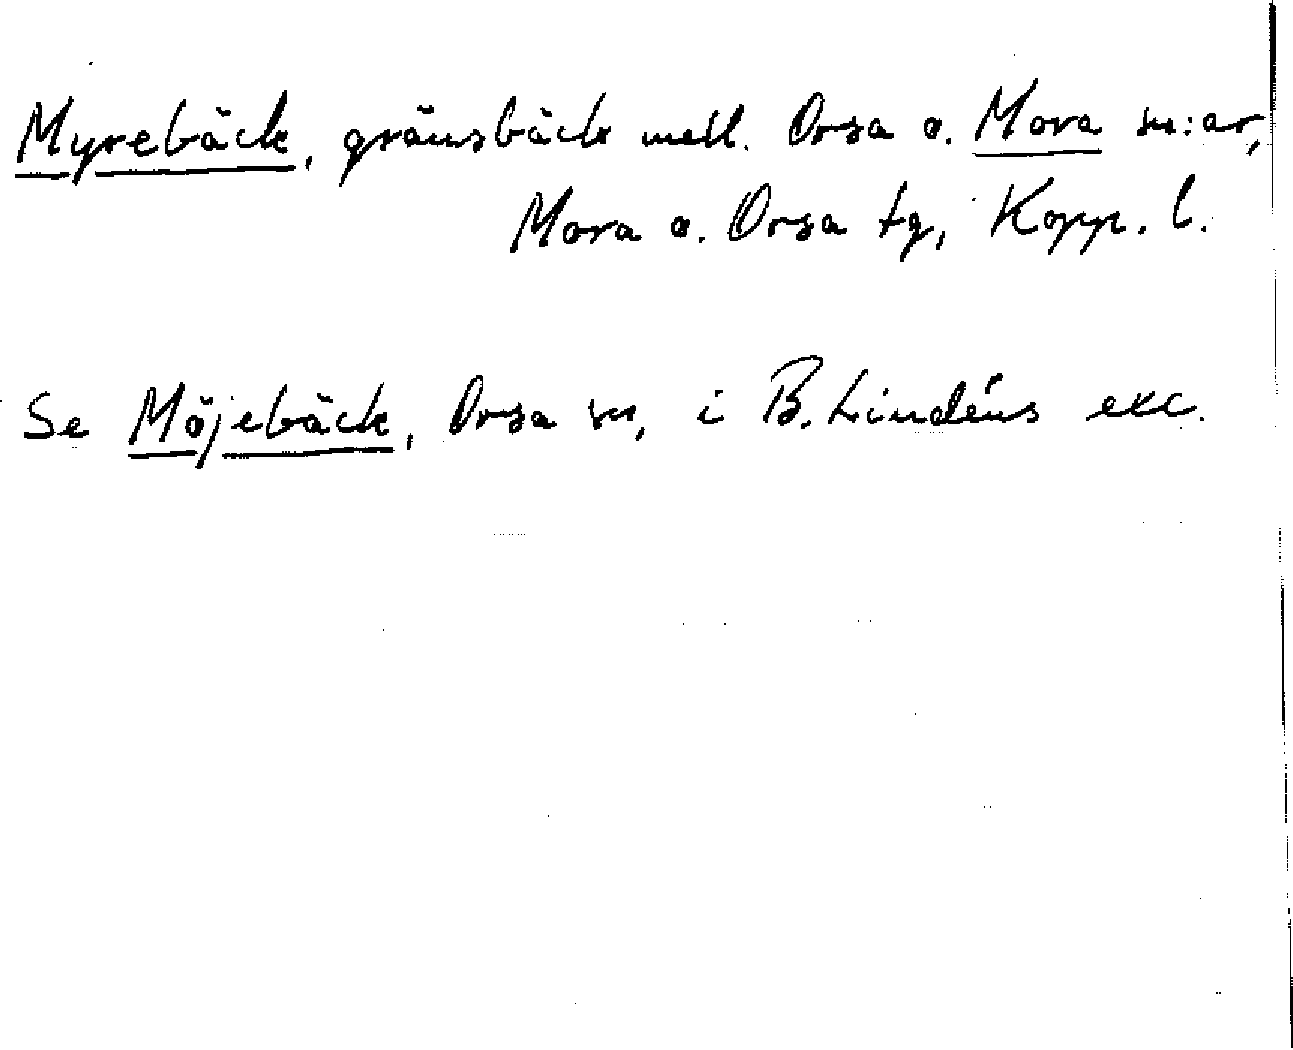 Myrebäck, gränsbäck mell. Orsa o. Mora sn:ar,
Mora o. Orsa tg, Kopp. l.
Se Möjebäck, Orsa sn, i B. Lindéns exc.